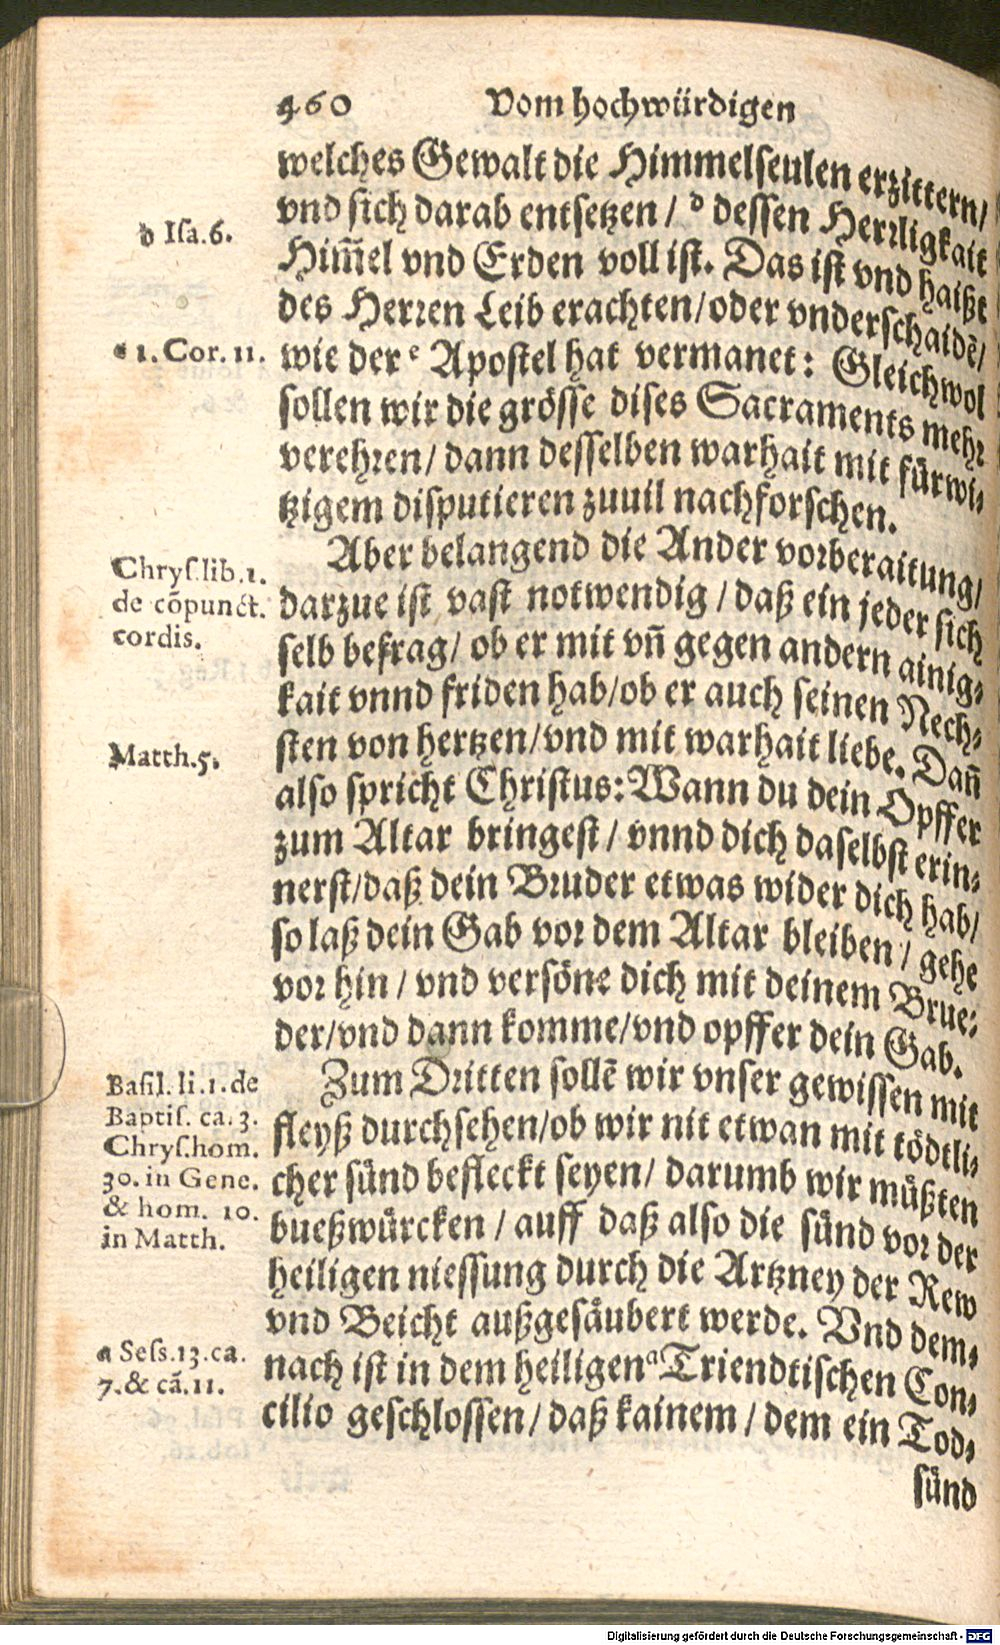 460 Vom hochwürdigen
welches Gewalt die Himmelseulen erzittern/
vnd sich darab entsetzen / d dessen Herrligkait
Him̃el vnd Erden voll ist. Das ist vnd haißt
des Herren Leib erachten/oder vnderschaidẽ/
wie der e Apostel hat vermanet: Gleichwol
sollen wir die grösse dises Sacraments mehr
verehren/ dann desselben warhait mit fürwi-
tzigem disputieren zuuil nachforschen.
Aber belangend die Ander vorberaitung/
darzue ist vast notwendig / daß ein jeder sich
selb befrag/ ob er mit vñ gegen andern ainig-
kait vnnd friden hab/ob er auch seinen Nech-
sten von hertzen/vnd mit warhait liebe. Dañ
also spricht Christus: Wann du dein Opffer
zum Altar bringest / vnnd dich daselbst erin-
nerst/daß dein Bruder etwas wider dich hab/
so laß dein Gab vor dem Altar bleiben / gehe
vor hin / vnd versöne dich mit deinem Brue-
der/vnd dann komme/vnd opffer dein Gab.
Zum Dritten sollẽ wir vnser gewissen mit
fleyß durchsehen/ob wir nit etwan mit tödtli-
cher sünd befleckt seyen/ darumb wir müßten
bueßwürcken / auff daß also die sünd vor der
heiligen niessung durch die Artzney der Rew
vnd Beicht außgesäubert werde. Vnd dem-
nach ist in dem heiligen a Triendtischen Con-
cilio geschlossen/ daß kainem / dem ein Tod-
sünd
d Isa.6.
e 1. Cor. 11.
Chrys.lib.1.
de cõpunct.
cordis.
Matth.5.
Basil. li.1. de
Baptis. ca. 3.
Chrys.hom.
30. in Gene.
& hom. 10.
in Matth.
a Sess.13.ca.
7.& cã.11.
Digitalisierung gefördert durch die Deutsche Forschungsgemeinschaft - DFG